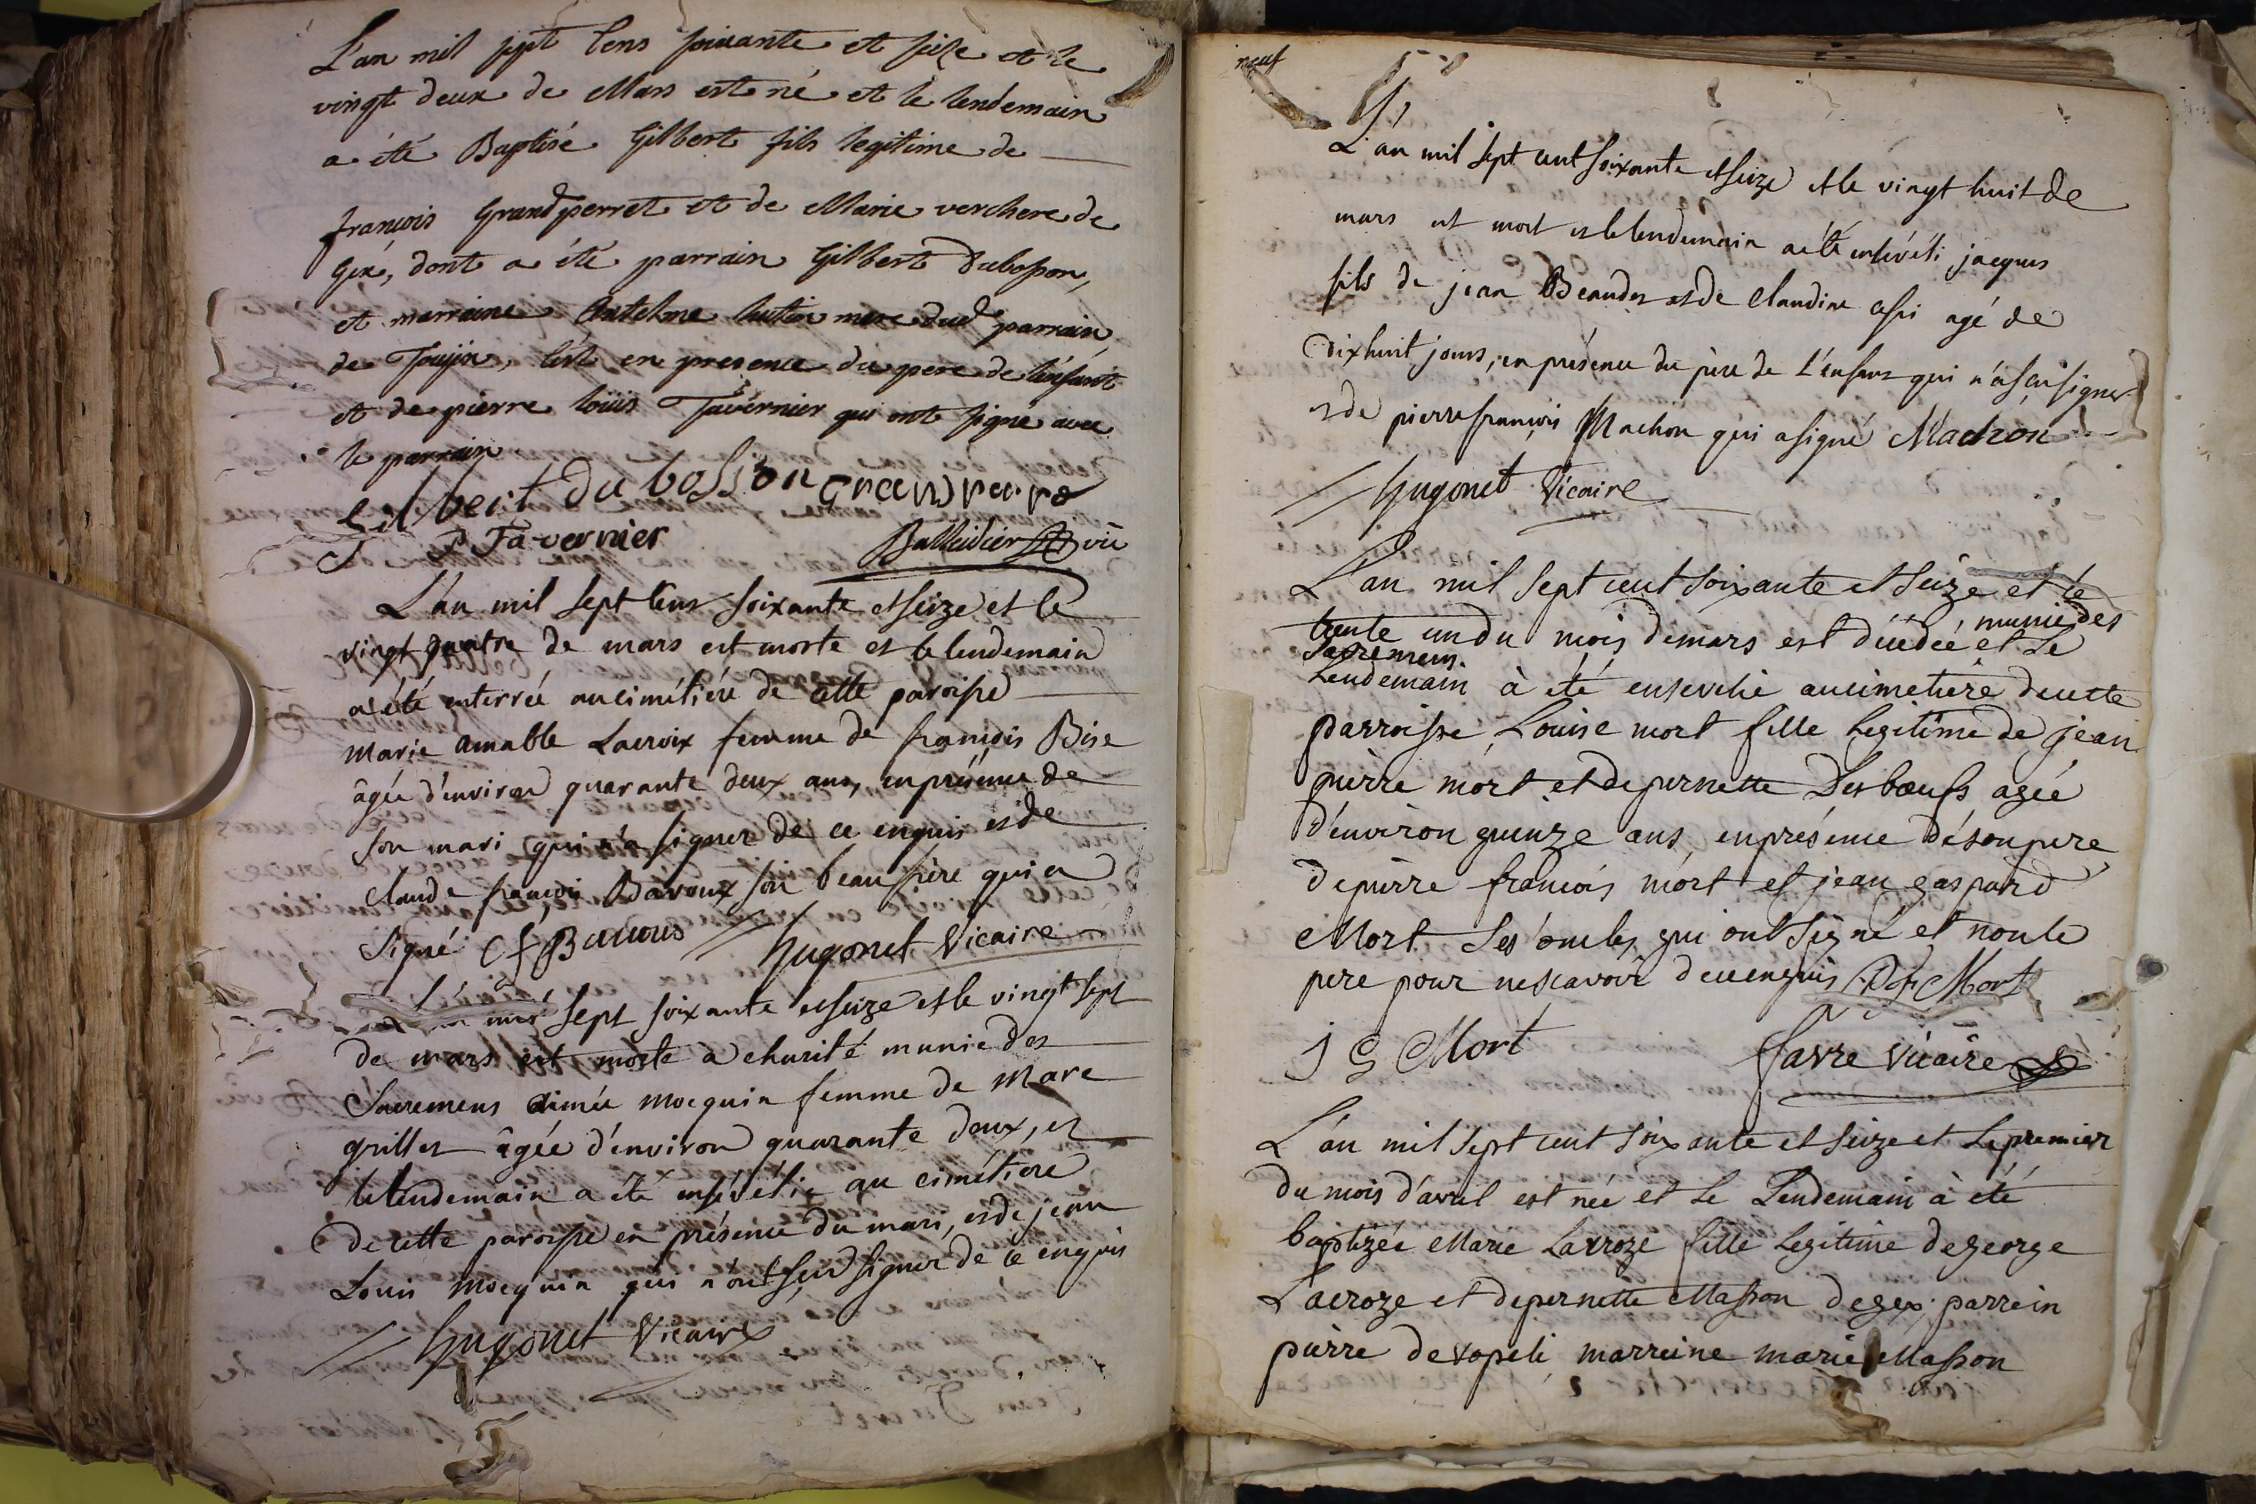 L'an mil sept cens soixante et seize et le
vingt deux de Mars est né et le lendemain
a été Baptisé Gilbert fils legitime de
françois Grandperret et de Marie verchere de
Gex, dont a été parrain Gilbert Dubosson,
et marraine Antelme hutin mere dud parrain
de Tougin, c'est en presence du pere de l'enfant
et de pierre loüis Tavernier qui ont signé avec
le parrain
Gilbert du bosson
P Tavernier Balleidier
L'an mil sept cens soixante et seize et le
vingt quatre de mars est morte et le lendemain
a été enterrée au cimétiére de cette paroisse
marie amable Lacroix femme de françois Bise
âgée d'environ quarante deux ans, en présence de
son mari qui n'a signer de ce enquis et de
claude françois Bavoux son beau frére qui a
signé C f Bavous Hugonet Vicaire
L'an mil sept soixante et seize et le vingt sept
de mars est morte a charité munie des
Sacremens aimée mocquin femme de marc
grillet âgée d'environ quarante deux, et
le lendemain a été ensévélie au cimétiere
de cette paroisse en présence du mari, et de jean
Louis mocquin qui n'ont sçu signer de ce enquis
Hugonet Vicaire
neuf
L'an mil sept cent soixante et seize et le vingt huit de
mars est mort et le lendemain a été ensévéli jacques
fils de jean Beaudet et de claudine agé de
dix huit jours, en présence du pére de l'enfant qui n'a sçu signer
et de pierre françois Machon qui a signé Machon
Hugonet Vicaire
L'an mil sept cent soixante et seize et le
munie des
trente un du mois de mars est décédée et Le
sacremens
Lendemain à été ensevelie au cimetiere de cette
parroisse Louise mort fille Legitime de jean
pierre mort et de pernette Desbœufs agée
d'environ quinze ans, en présence de son pere
de pierre francois mort et jean gaspard
Mort ses oncles qui ont signé et non le
pere pour ne scavoir de ce enquis P f Mort
J G Mort favre vicaire
L'an mil sept cent soixante et seize et le premier
du mois d'avril est née et Le Lendemain à été
baptizée Marie Lacroze fille Legitime de george
Lacroze et de pernette Masson de gex; parrein
pierre marreine marie Masson